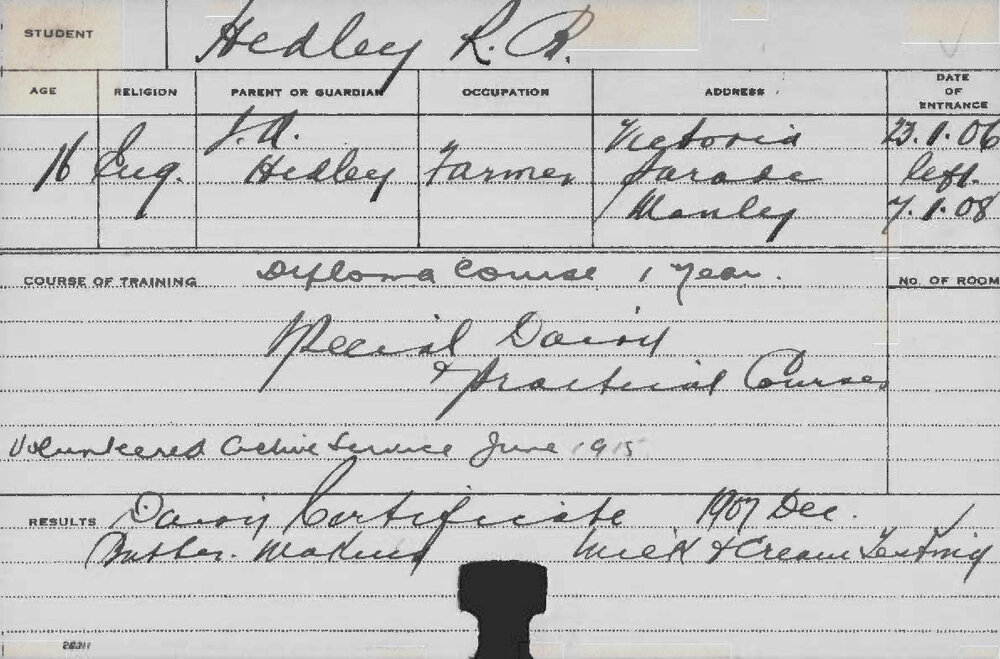 STUDENT Hedley R. R.
AGE RELIGION PARENT OR GUARDIAN OCCUPATION ADDRESS DATE OF ENTRANCE
16 Eng. J. A. Hedley Farmer Victoria Parade Manley 23.1.06 left. 7.1.08
COURSE OF TRAINING Diploma Course 1 Year. NO. OF ROOM
Special Dairy
& Practical Courses
Volunteered Active Service June 1915
RESULTS Dairy Certificate 1907 Dec.
Butter Making Milk & Cream Testing